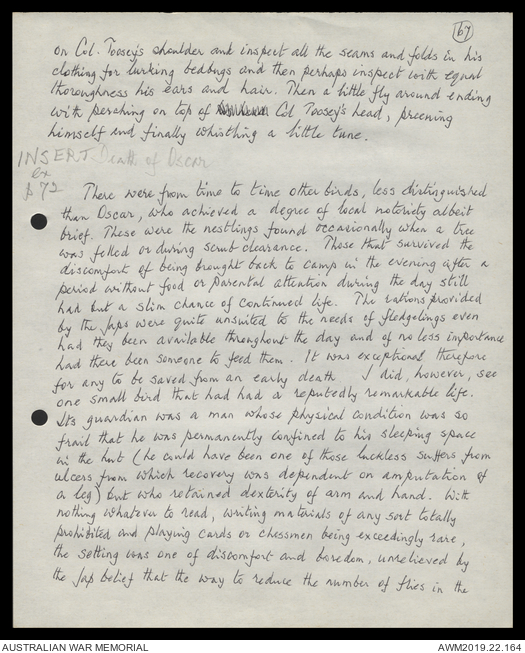 67
on Col. Toosey's shoulder and inspect all the seams and folds in his
clothing for lurking bedbugs and then perhaps inspect with equal
thoroughness his ears and hair. Then a little fly around ending
with perching on top of Col Toosey's head, preening
himself and finally whistling a little tune.
INSERT Death of Oscar
ex
p 72
There were from time to time other birds, less distinguished
than Oscar, who achieved a degree of local notoriety albeit
brief. These were the nestlings found occasionally when a tree
was felled or during scrub clearance. Those that survived the
discomfort of being brought back to camp in the evening after a
period without food or parental attention during the day still
had but a slim chance of continued life. The rations provided
by the Japs were quite unsuited to the needs of fledgelings even
had they been available throughout the day and of no less importance
had there been someone to feed them. It was exceptional therefore
for any to be saved from an early death I did, however, see
one small bird that had had a reputedly remarkable life.
Its guardian was a man whose physical condition was so
frail that he was permanently confined to his sleeping space
in the hut (he could have been one of those luckless suffers from
ulcers from which recovery was dependent on amputation of
a leg) but who retained dexterity of arm and hand. With
nothing whatever to read, writing materials of any sort totally
prohibited and playing cards or chessmen being exceedingly rare,
the setting was one of discomfort and boredom, unrelieved by
the Jap belief that the way to reduce the number of flies in the
AUSTRALIAN WAR MEMORIAL
AWM2019.22.164